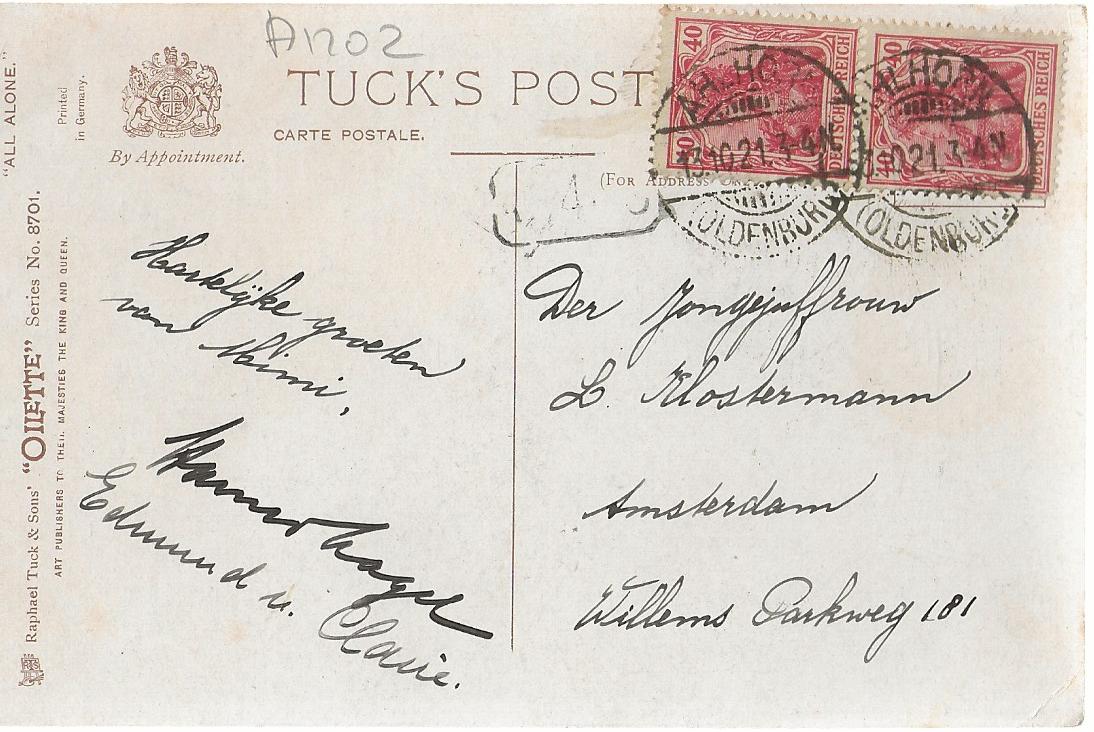 A1202
TUCK'S POST
CARTE POSTALE.
By Appointment.
(FOR ADDRESS
"ALL ALONE."
Printed
in Germany.
Raphael Tuck & Sons' "OILETTE" Series No. 8701.
ART PUBLISHERS TO THEIR MAJESTIES THE KING AND QUEEN.
40 40 DEUTSCHES REICH
40 40 DEUTSCHES REICH
AHLHORN
13.10.21.3-4N
(OLDENBURG)
AHLHORN
13.10.21.3-4N
(OLDENBURG)
Hartelijke groeten
van Mimi,
Edmund u. Claire.
Der Jongejuffrouw
L. Klostermann
Amsterdam
Willems Parkweg 181